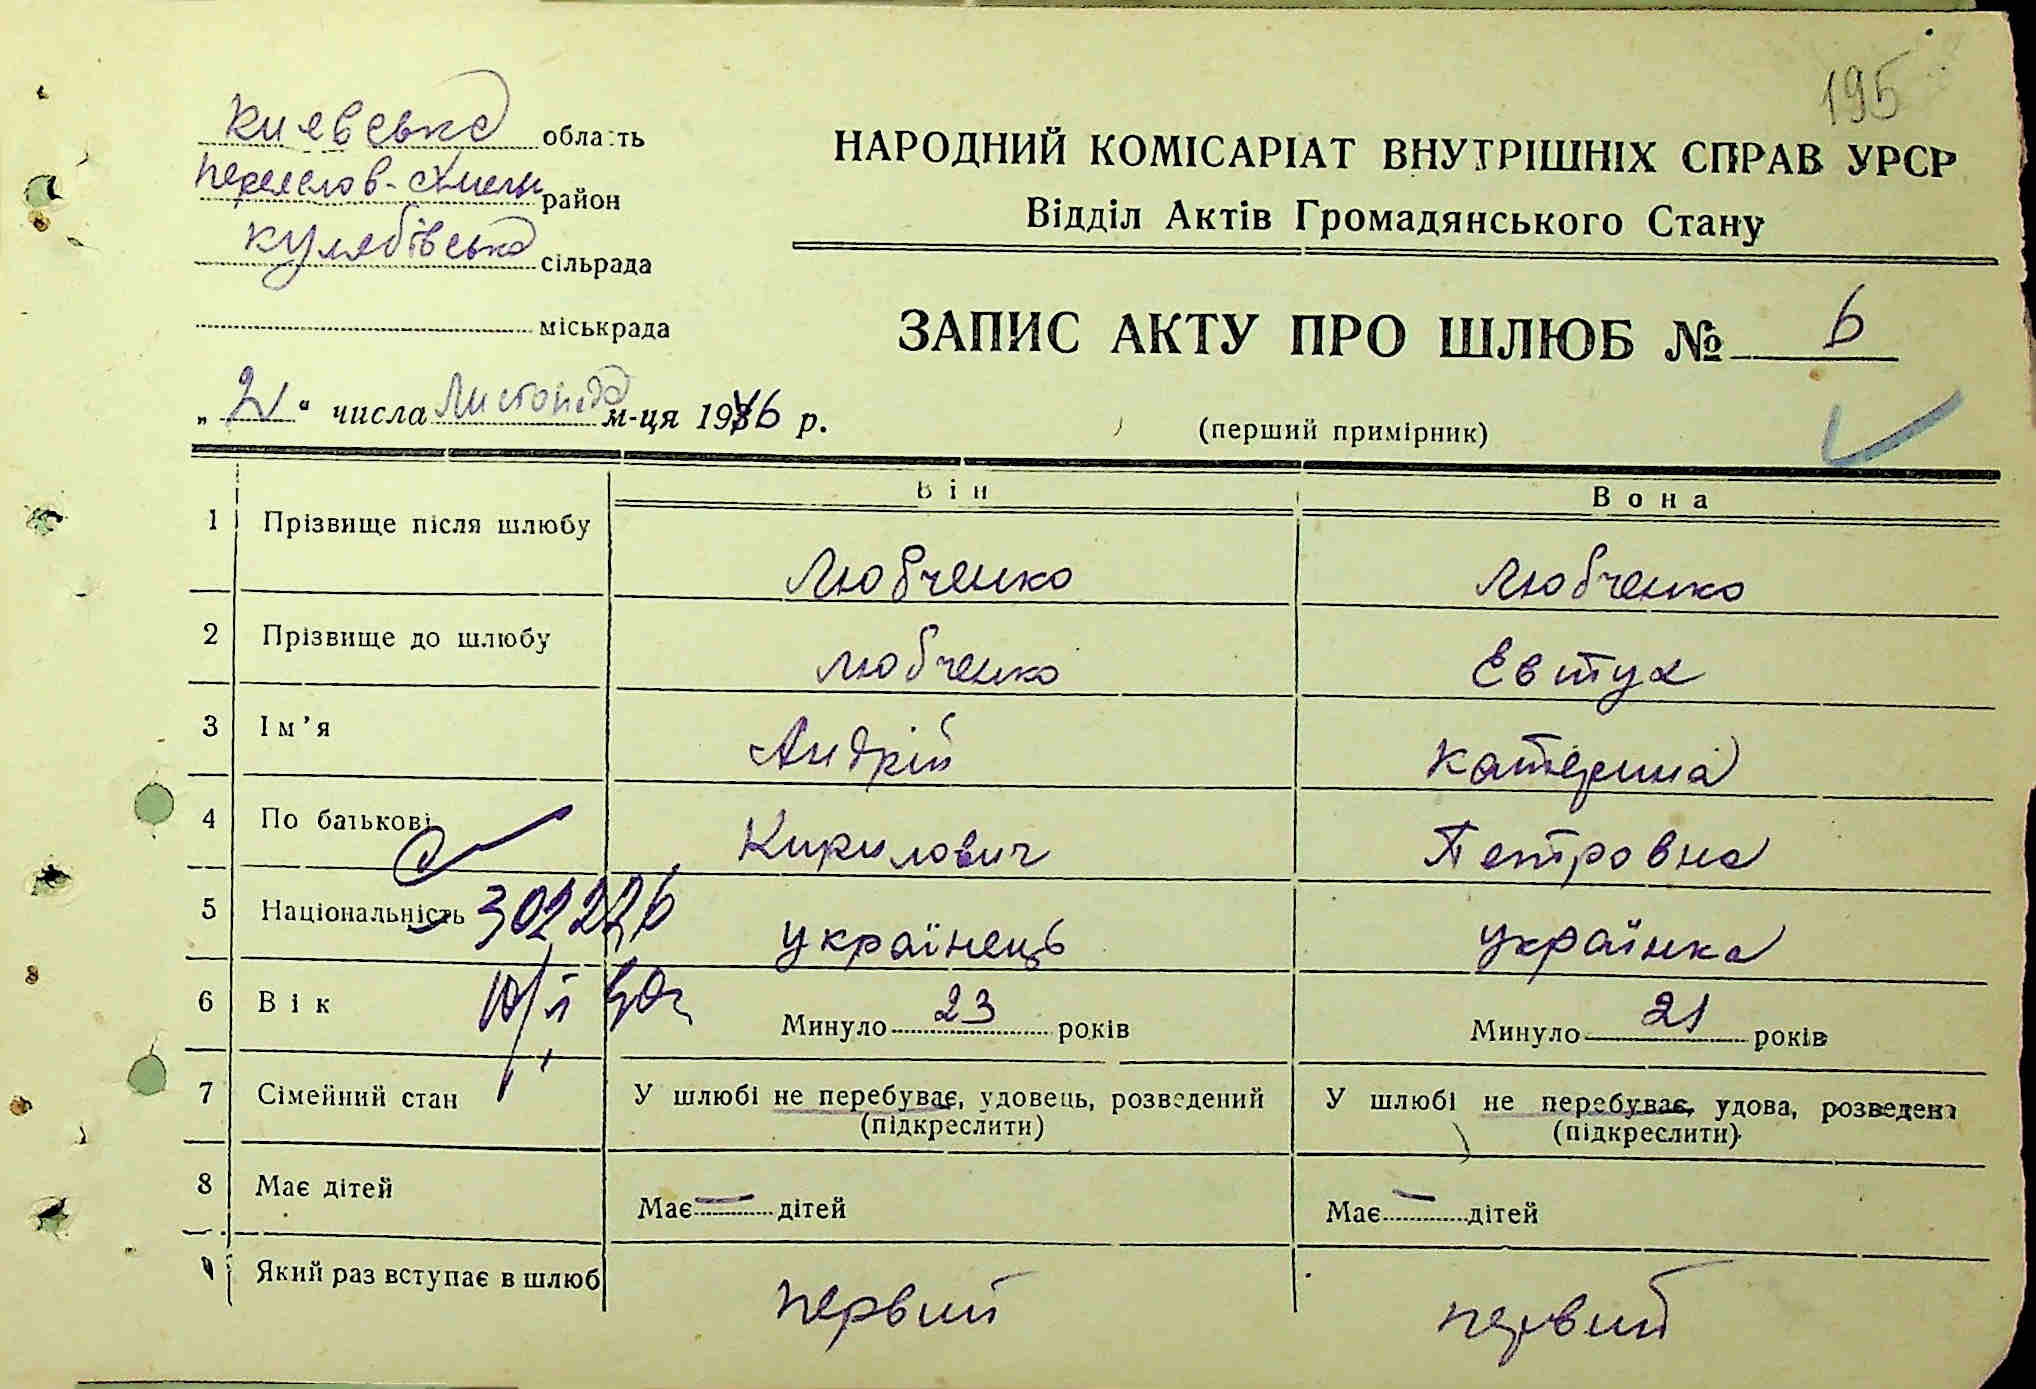 195
Киевська область
Переяслов-Хмелн район
Кулябівська сільрада
міськрада
НАРОДНИЙ КОМІСАРІАТ ВНУТРІШНІХ СПРАВ УРСР
Відділ Актів Громадянського Стану
ЗАПИС АКТУ ПРО ШЛЮБ № 6
(перший примірник)
числа Листопада м-ця 1946 р.
Він Вона
1 Прізвище після шлюбу Любченко Любченко
2 Прізвище до шлюбу Любченко Евтух
3 Ім'я Андрій Катерина
4 По батькові Кирилович Петровна
5 Національність українець українка
6 Вік Минуло 23 років Минуло 21 років
7 Сімейний стан У шлюбі не перебуває, удовець, розведений У шлюбі не перебуває, удова, розведена
(підкреслити) (підкреслити)
8 Має дітей Має — дітей Має — дітей
Який раз вступає в шлюб первий первий